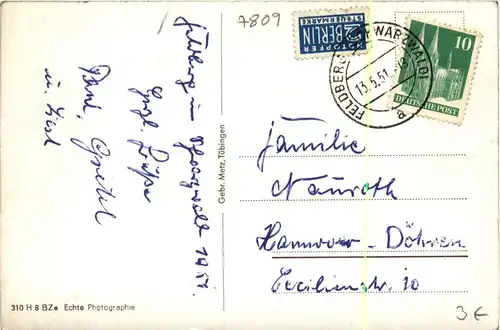 7809
NOTOPFER
2 BERLIN
STEUERMARKE
FELDBERG (SCHWARZWALD)
13.5.51
a
10
DEUTSCHE POST
Feldberg im Schwarzwald 1951.
Herzl. Grüße
Paul, Gretel
u. Liesl
Gebr. Metz, Tübingen
Familie
Nauroth
Hannover-Döhren
Cäcilienstr. 10
310 H 8 BZe Echte Photographie
3€